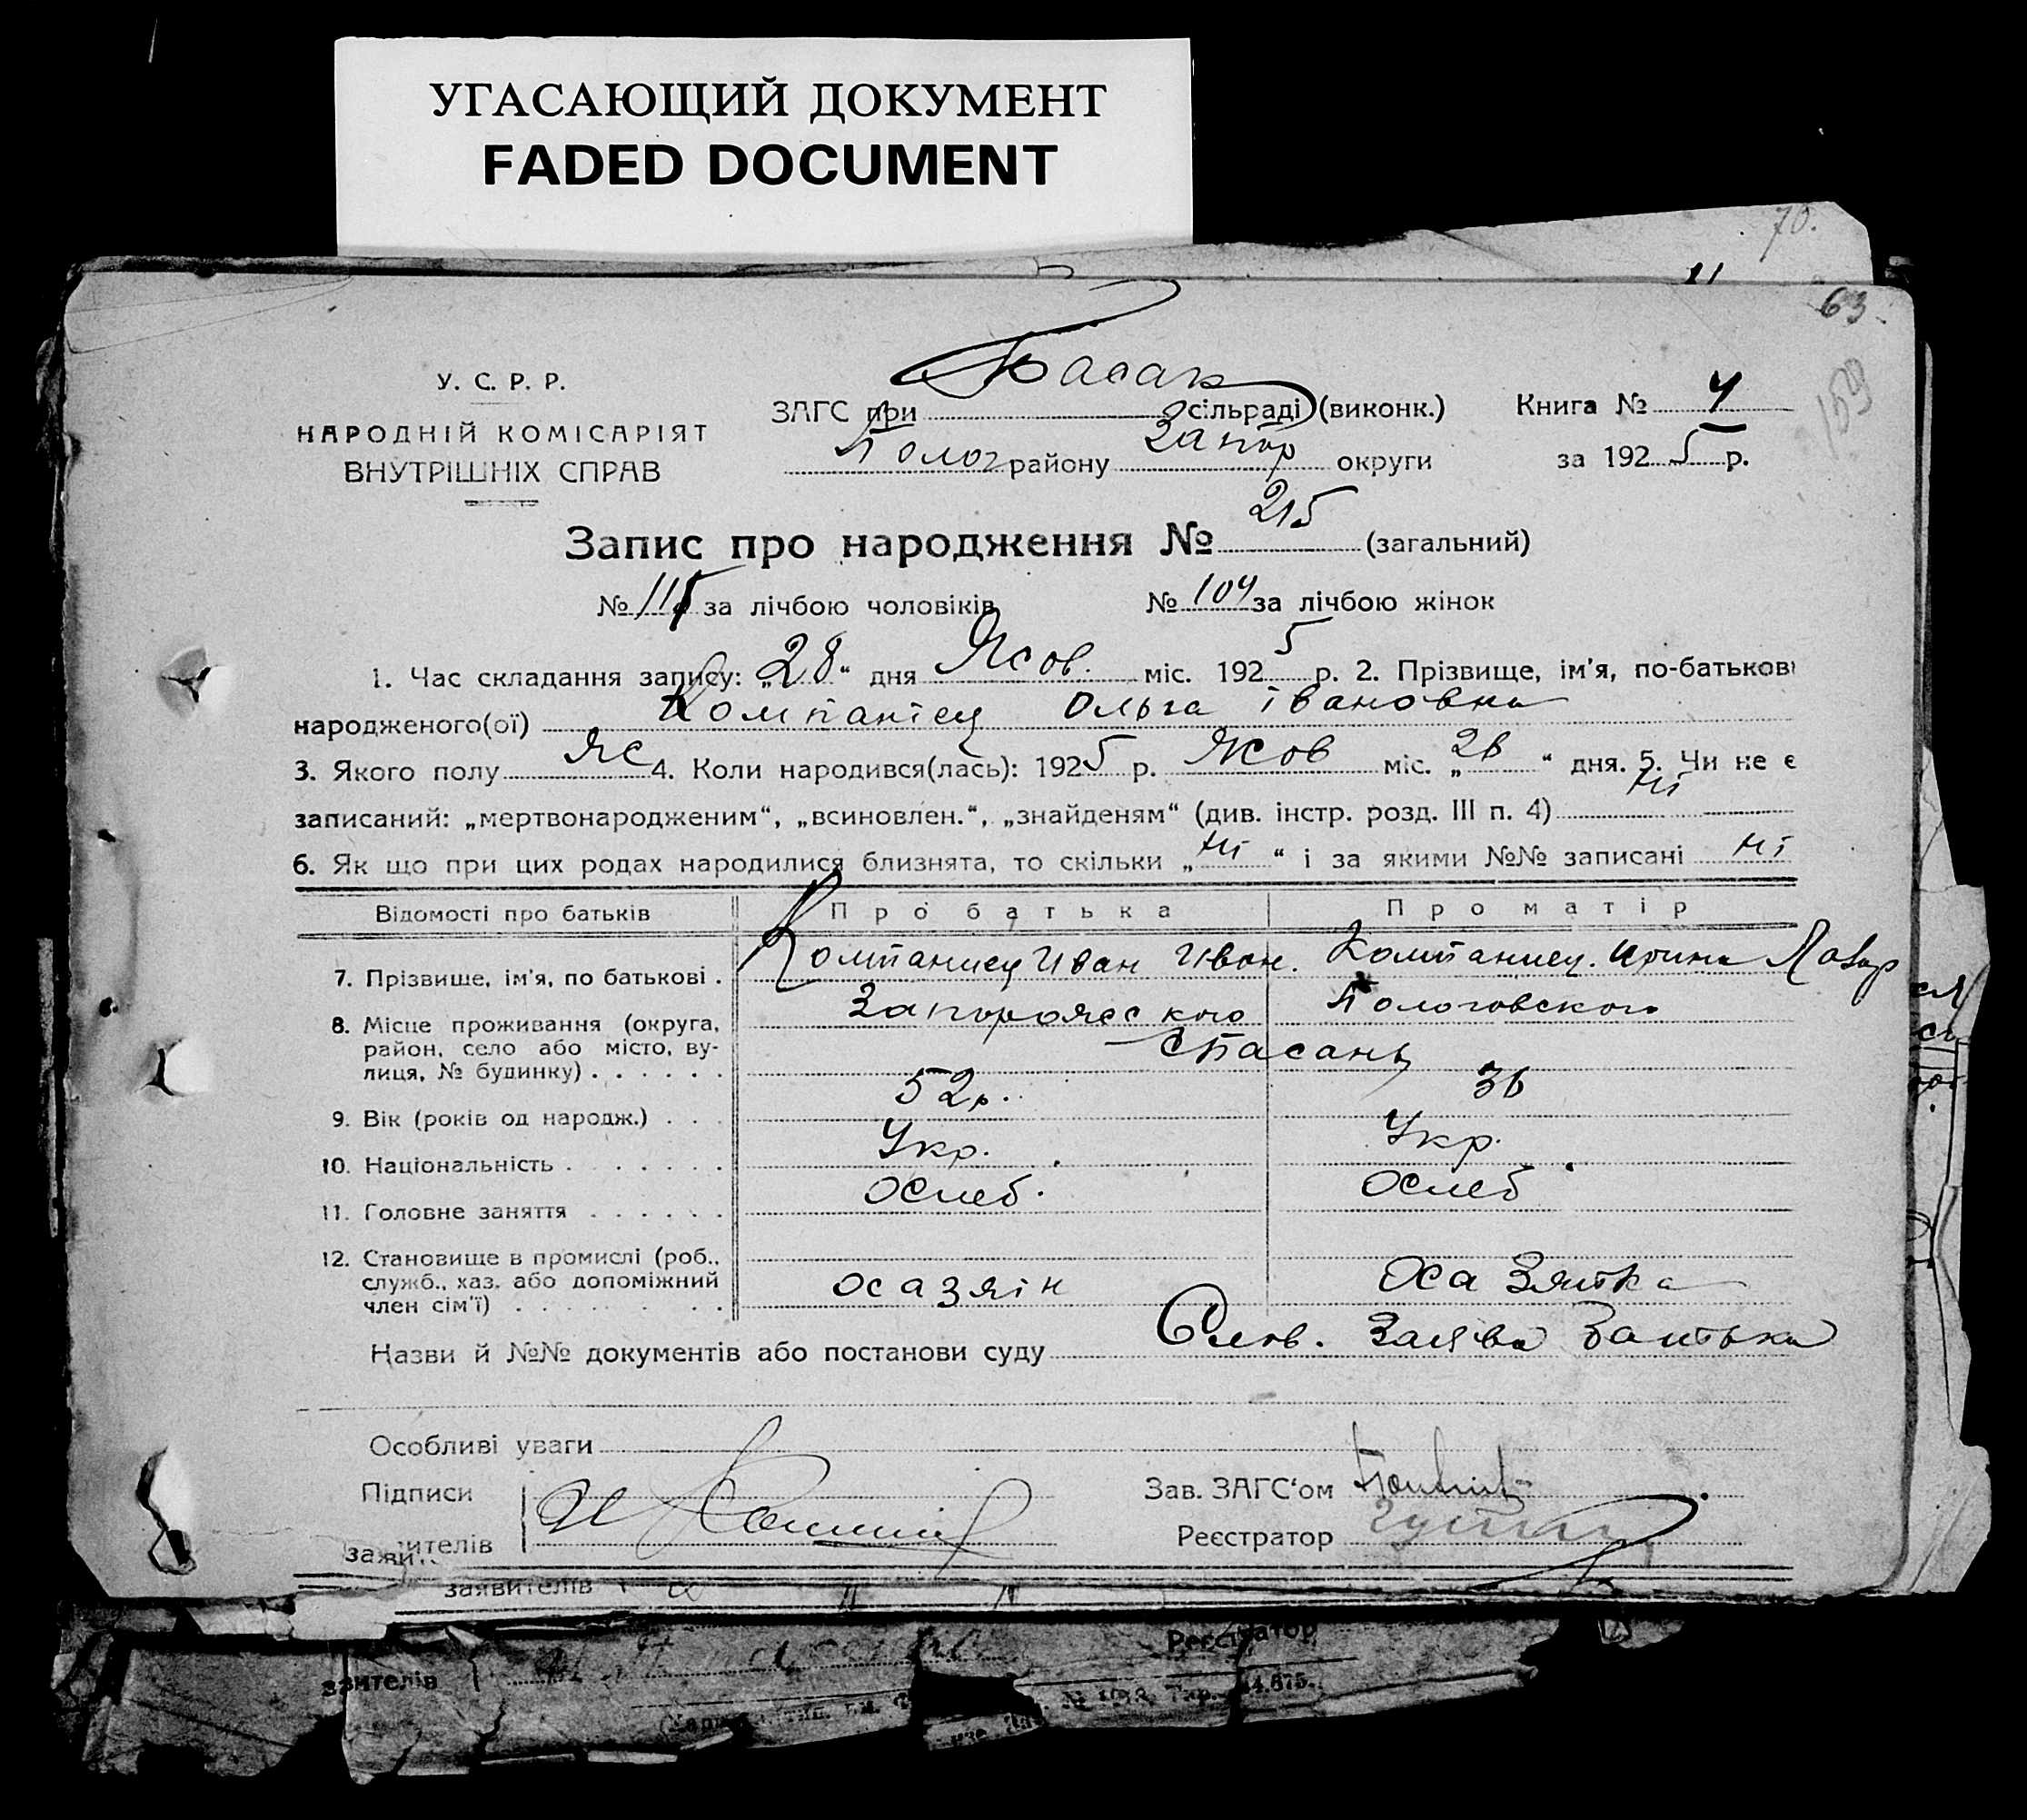 УГАСАЮЩИЙ ДОКУМЕНТ
FADED DOCUMENT
70.
63
159
У. С. Р. Р.
НАРОДНІЙ КОМІСАРІЯТ
ВНУТРІШНІХ СПРАВ
Басан
ЗАГС при сільраді (виконк.)
Полог району Запор округи
Книга № 4
за 1925 р.
Запис про народження № 215 (загальний)
№ 111 за лічбою чоловіків № 104 за лічбою жінок
1. Час складання запису: „28“ дня Жов. міс. 1925 р. 2. Прізвище, ім'я, по-батькові
народженого(ої) Компаніец Ольга Івановна
3. Якого полу Ж 4. Коли народився(лась): 1925 р. Жов міс. „26“ дня. 5. Чи не є
записаний: „мертвонародженим“, „всиновлен.“, „знайденям“ (див. інстр. розд. III п. 4) ні
6. Як що при цих родах народилися близнята, то скільки „ні“ і за якими №№ записані ні
Відомості про батьків Про батька Про матір
7. Прізвише, ім'я, по батькові . Компаниец Иван Иван. Компаниец. Ирина Лазар
8. Місце проживання (округа, район, село або місто, вулиця, № будинку) . . . . . . Запорожского Пологовского
9. Вік (років од народж.) . . . 52р. 36
10. Національність . . . . . . . Укр. Укр.
11. Головне заняття . . . . . .
12. Становище в промислі (роб., служб., хаз. або допоміжний член сім'ї) . . . . . . . .
Назви й №№ документів або постанови суду Слов. Заява Батька
Особливі уваги
Підписи
заявителів
Зав. ЗАГС‘ом
Реєстратор
заявителів
Реєстратор